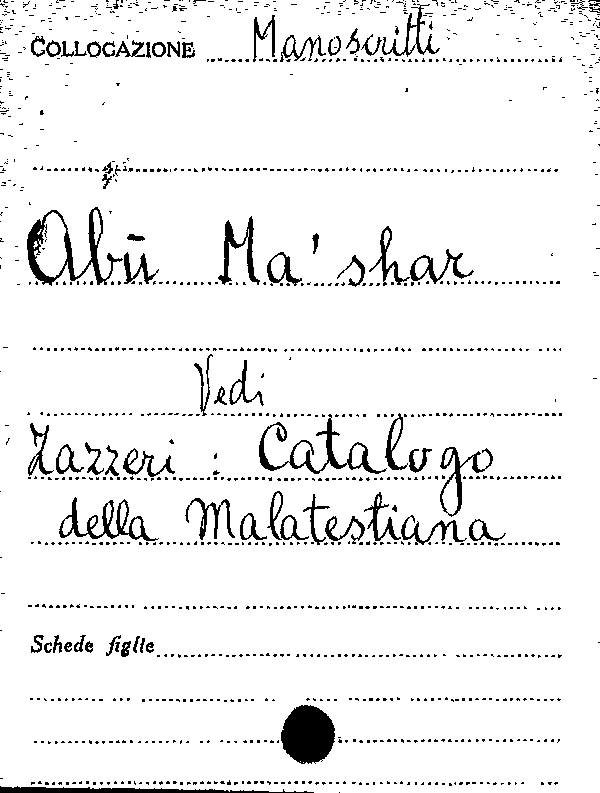 COLLOCAZIONE Manoscritti
Abū Ma'shar
Vedi
Zazzeri : Catalogo
della Malatestiana
Schede figlie